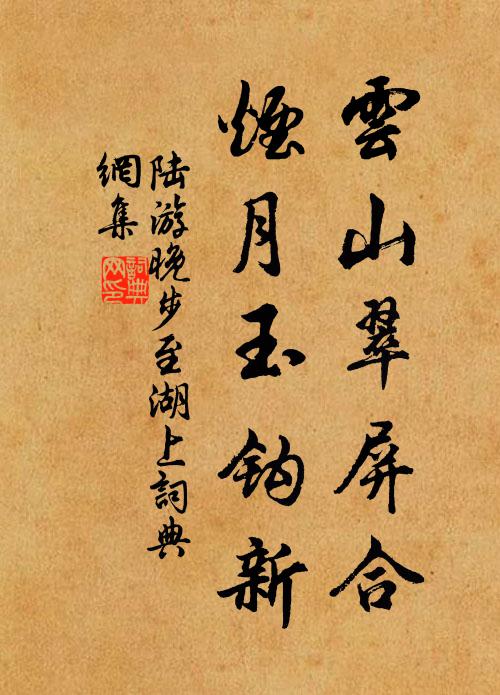 雲山翠屏合
煙月玉鈎新
陸游晚步至湖上詞典
網集
詞典
网印